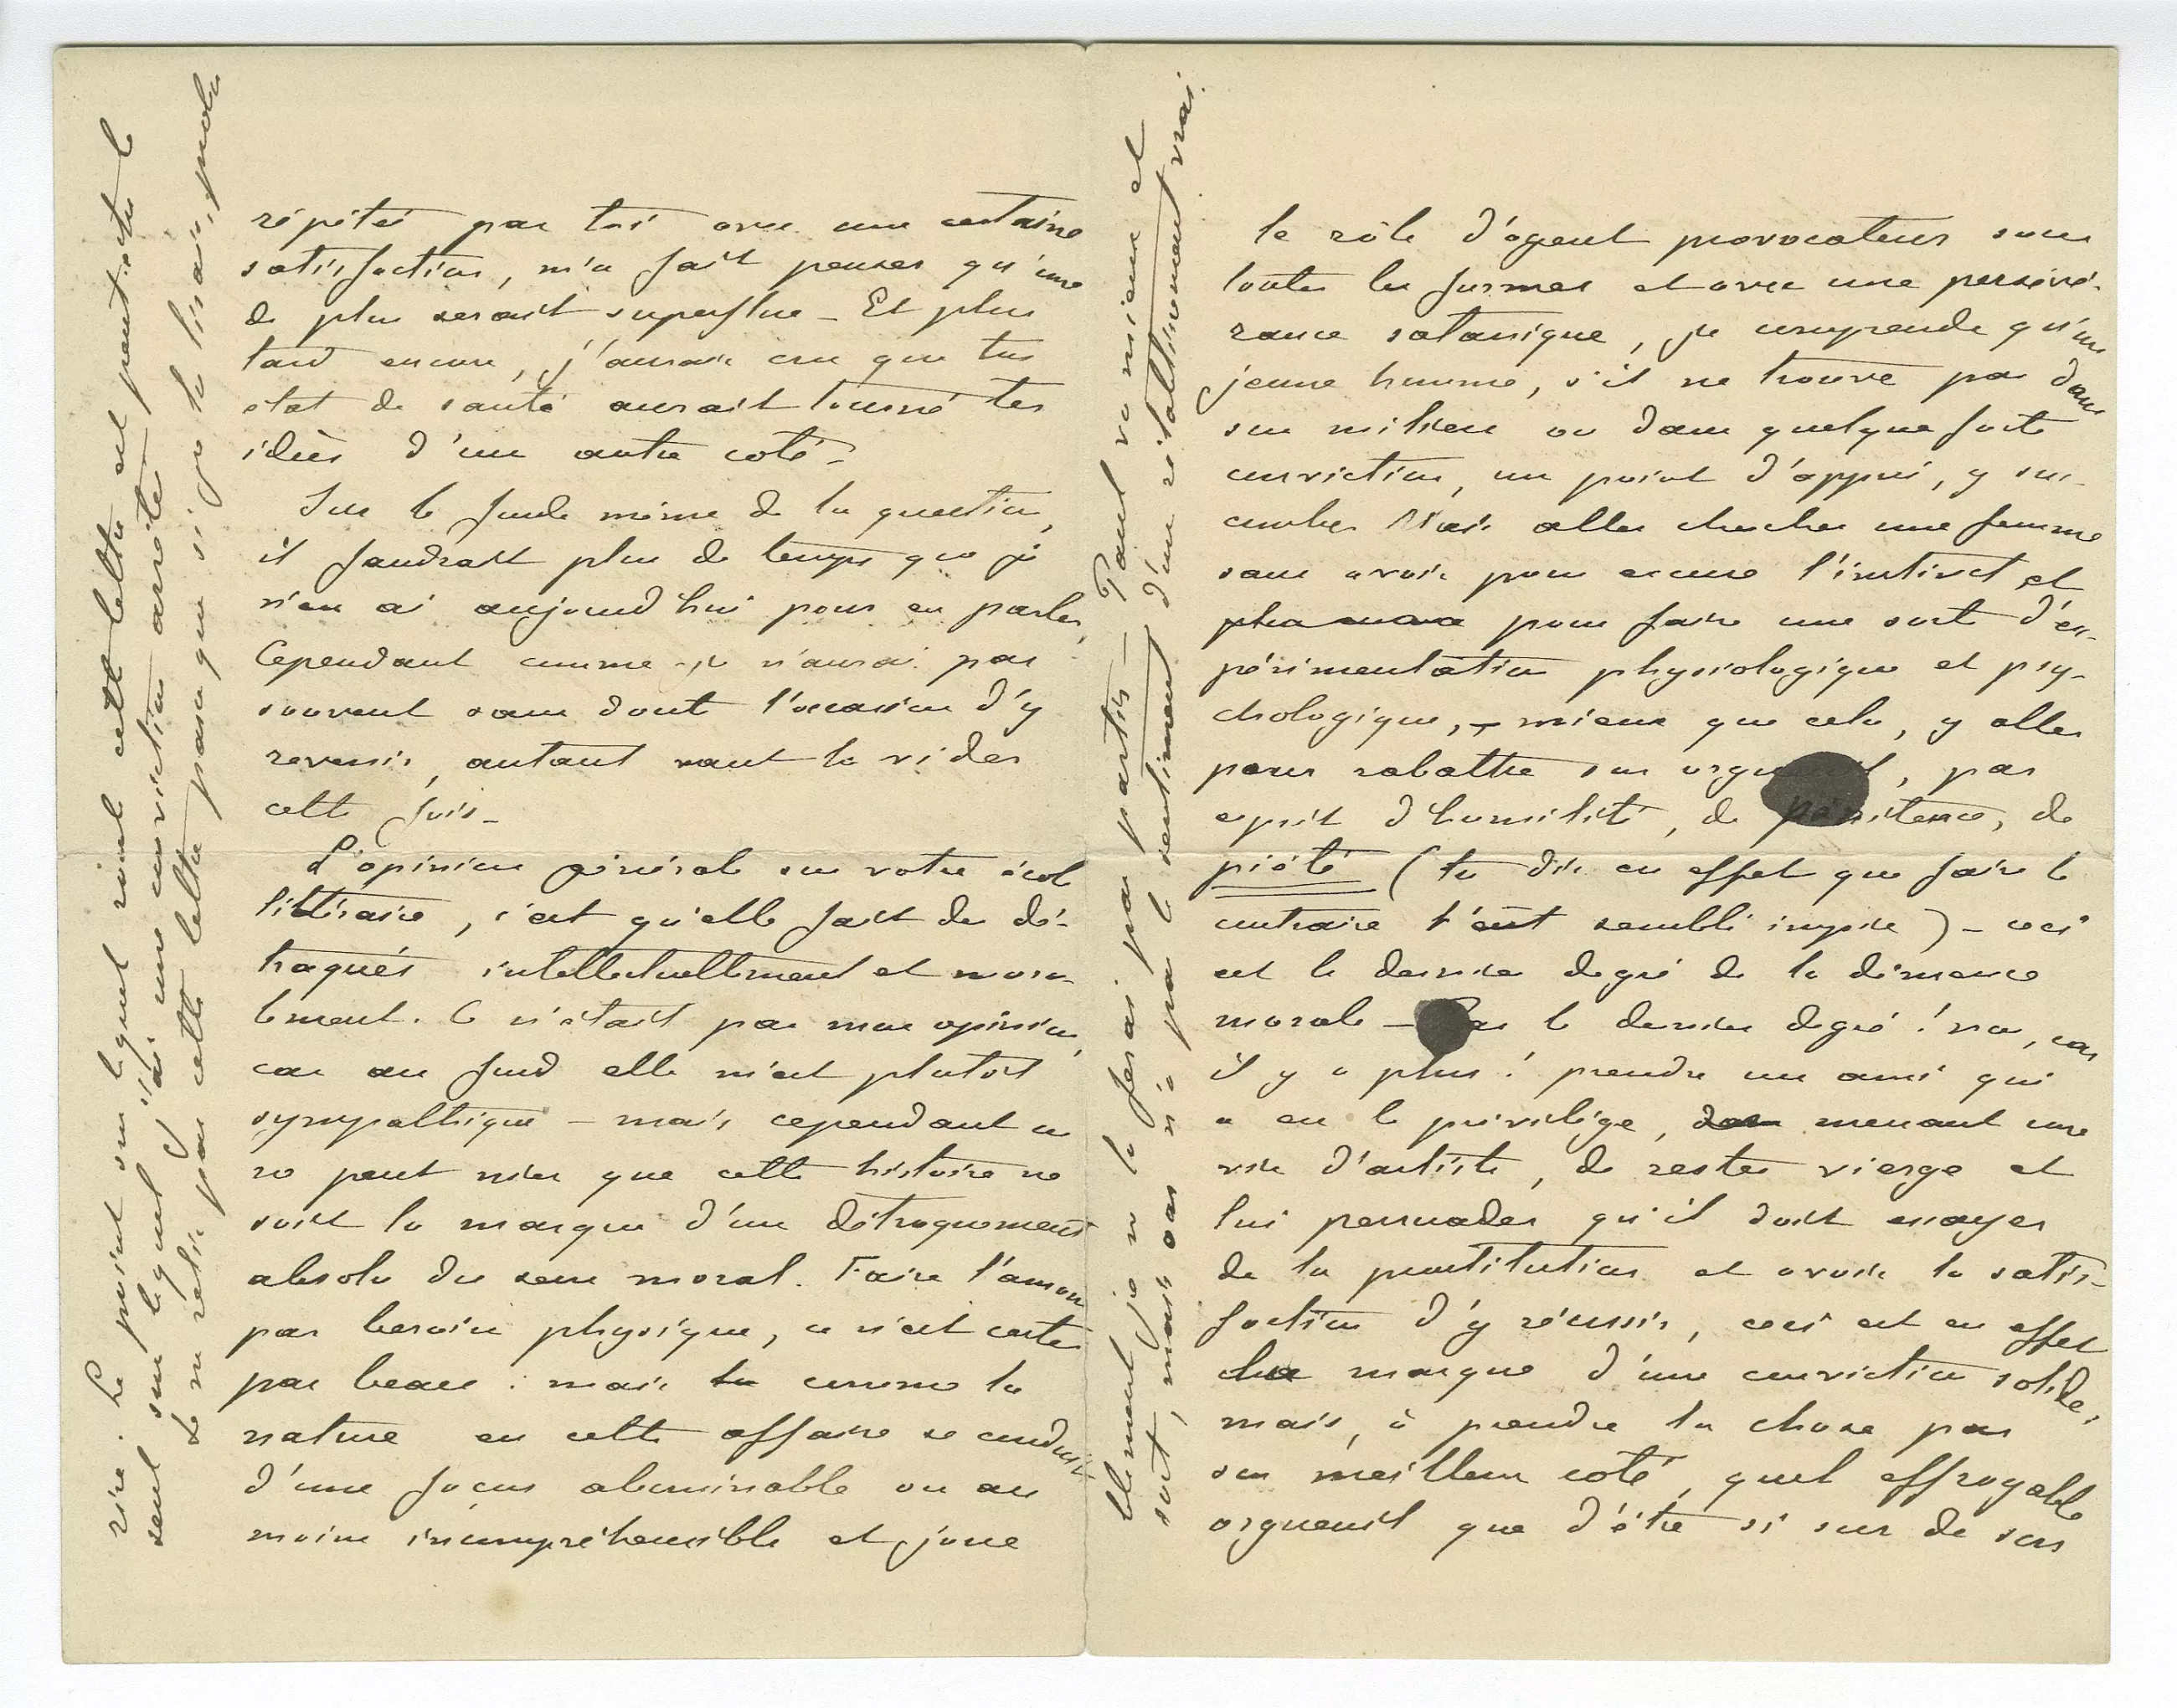 répétée par toi avec une certaine
satisfaction, m'a fait penser qu'une
de plus serait superflue - Et plus
tard encore, j'aurais cru que ton
état de santé aurait tourné tes
idées d'un autre coté -
Sur le fonds même de la question,
il faudrait plus de temps que je
n'en ai aujourd'hui pour en parler,
Cependant comme je n'aurai pas
souvent sans doute l'occasion d'y
revenir, autant vaut la vider
cette fois -
L'opinion générale sur votre école
littéraire, c'est qu'elle fait de dé-
traqués intellectuellement et mora-
lement. Ce n'était pas mon opinion,
car au fond elle m'est plutôt
sympathique - mais cependant on
ne peut nier que cette histoire ne
soit la marque d'un détraquement
absolu du sens moral. Faire l'amour
par besoin physique, ce n'est certes
pas beau : mais la comme la
nature en cette affaire se conduit
d'une façon abominable ou au
moins incompréhensible et joue
rire. Le point sur lequel roule cette lettre est peut-être le
seul sur lequel j'ai une conviction arrêtée
Je ne relis pas cette lettre parce que si je la lisais,
le rôle d'agent provocateur sous
toutes les formes et avec une persévé-
rance satanique, je comprends qu'un
jeune homme, s'il ne trouve pas dans
son milieu ou dans quelque forte
conviction, un point d'appui, y suc-
combe. Mais aller chercher une femme
sans avoir pour excuse l'instinct et
pour faire une sorte d'ex-
périmentation physiologique et psy-
chologique, - mieux que cela, y aller
pour rabattre son orgueil, par
esprit d'humilité, de pénitence, de
piété (tu dis en effet que faire le
contraire t'eût semblé impie) - ceci
est le dernier degré de la démence
morale - Pas le dernier degré ! non, car
il y a plus ! prendre un ami qui
a eu le privilège, menant une
vie d'artiste, de rester vierge et
lui persuader qu'il doit essayer
de la prostitution et avoir la satis-
faction d'y réussir, ceci est en effet
la marque d'une conviction solide,
mais, à prendre la chose par
son meilleur coté, quel effroyable
orgueuil que d'être si sur de son
blement je ne la ferai pas partir - Tant vo mieux et
soit, mais car n'a pas le sentiment d'un vrai